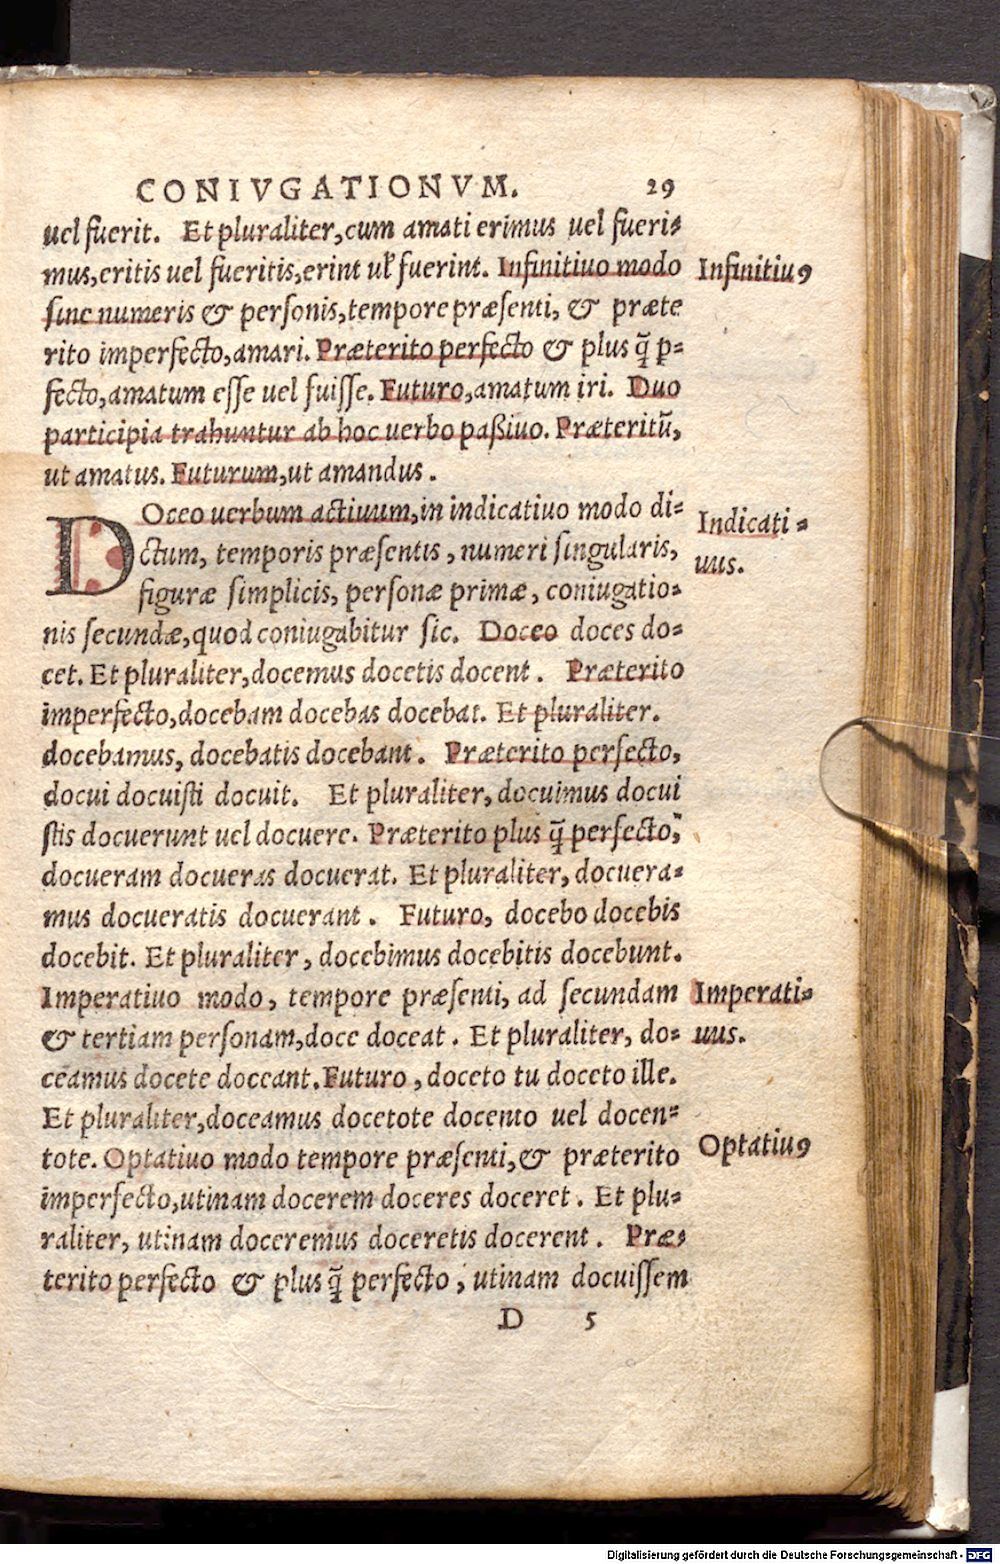 CONIVGATIONVM. 29
uel fuerit. Et pluraliter, cum amati erimus uel fueri⸗
mus, eritis uel fueritis, erint ul̕ fuerint. Infinitiuo modo
Infinitiuꝰ
sine numeris & personis, tempore præsenti, & præte
rito imperfecto, amari. Præterito perfecto & plus q̃ ꝑ⸗
fecto, amatum esse uel fuisse. Futuro, amatum iri. Duo
participia trahuntur ab hoc uerbo paßiuo. Præteritũ,
ut amatus. Futurum, ut amandus.
DOceo uerbum actiuum, in indicatiuo modo di⸗
Indicati⸗
ctum, temporis præsentis, numeri singularis,
uus.
figuræ simplicis, personæ primæ, coniugatio⸗
nis secundæ, quod coniugabitur sic. Doceo doces do⸗
cet. Et pluraliter, docemus docetis docent. Præterito
imperfecto, docebam docebas docebat. Et pluraliter.
docebamus, docebatis docebant. Præterito perfecto,
docui docuisti docuit. Et pluraliter, docuimus docui
stis docuerunt uel docuere. Præterito plus q̃ perfecto,
docueram docueras docuerat. Et pluraliter, docuera⸗
mus docueratis docuerant. Futuro, docebo docebis
docebit. Et pluraliter, docebimus docebitis docebunt.
Imperatiuo modo, tempore præsenti, ad secundam
Imperati⸗
& tertiam personam, doce doceat. Et pluraliter, do⸗
uus.
ceamus docete doceant. Futuro, doceto tu doceto ille.
Et pluraliter, doceamus docetote docento uel docen⸗
tote. Optatiuo modo tempore præsenti, & præterito
Optatiuꝰ
imperfecto, utinam docerem doceres doceret. Et plu⸗
raliter, utinam doceremus doceretis docerent. Præ⸗
terito perfecto & plus q̃ perfecto, utinam docuissem
D 5
Digitalisierung gefördert durch die Deutsche Forschungsgemeinschaft - DFG